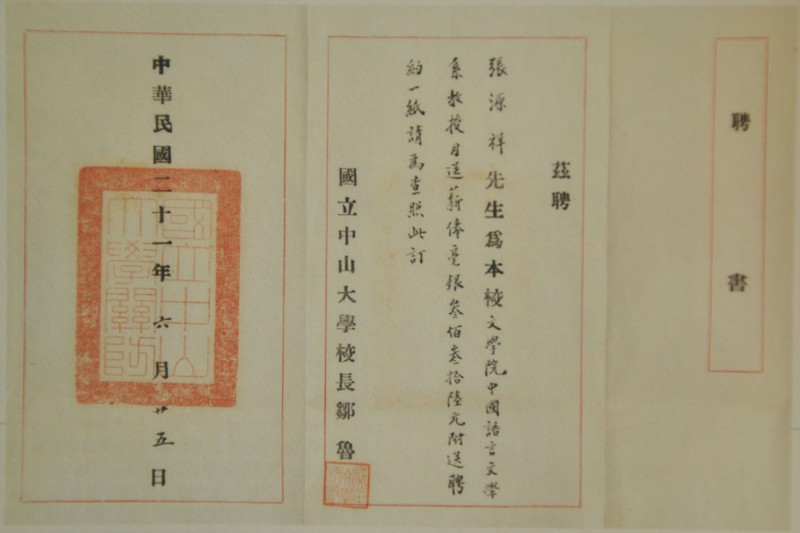 聘書
茲聘
張源祥先生為本校文學院中國語言文學
系教授月送薪俸毫銀叁佰叁拾陸元附送聘
約一紙請為查照此訂
國立中山大學校長鄒魯
中華民國二十一年六月廿五日
國立中山
大學關防